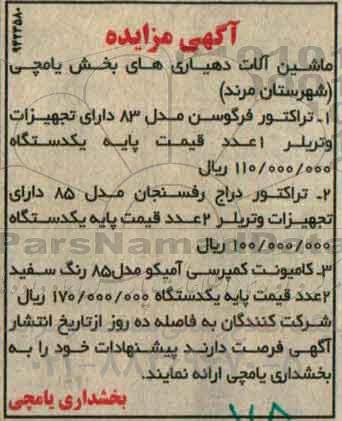 آگهی مزایده
۹۴۲۳۵۸۰
ماشین آلات دهیاری های بخش یامچی
(شهرستان مرند)
۱ـ تراکتور فرگوسن مدل ۸۳ دارای تجهیزات
وتریلر ۱عدد قیمت پایه یکدستگاه
۱۱۰/۰۰۰/۰۰۰ ریال
۲ـ تراکتور دراج رفسنجان مدل ۸۵ دارای
تجهیزات وتریلر ۲عدد قیمت پایه یکدستگاه
۱۰۰/۰۰۰/۰۰۰ ریال
۳ـ کامیونت کمپرسی آمیکو مدل۸۵ رنگ سفید
۲عدد قیمت پایه یکدستگاه ۱۷۰/۰۰۰/۰۰۰ ریال
شرکت کنندگان به فاصله ده روز ازتاریخ انتشار
آگهی فرصت دارند پیشنهادات خود را به
بخشداری یامچی ارائه نمایند.
بخشداری یامچی